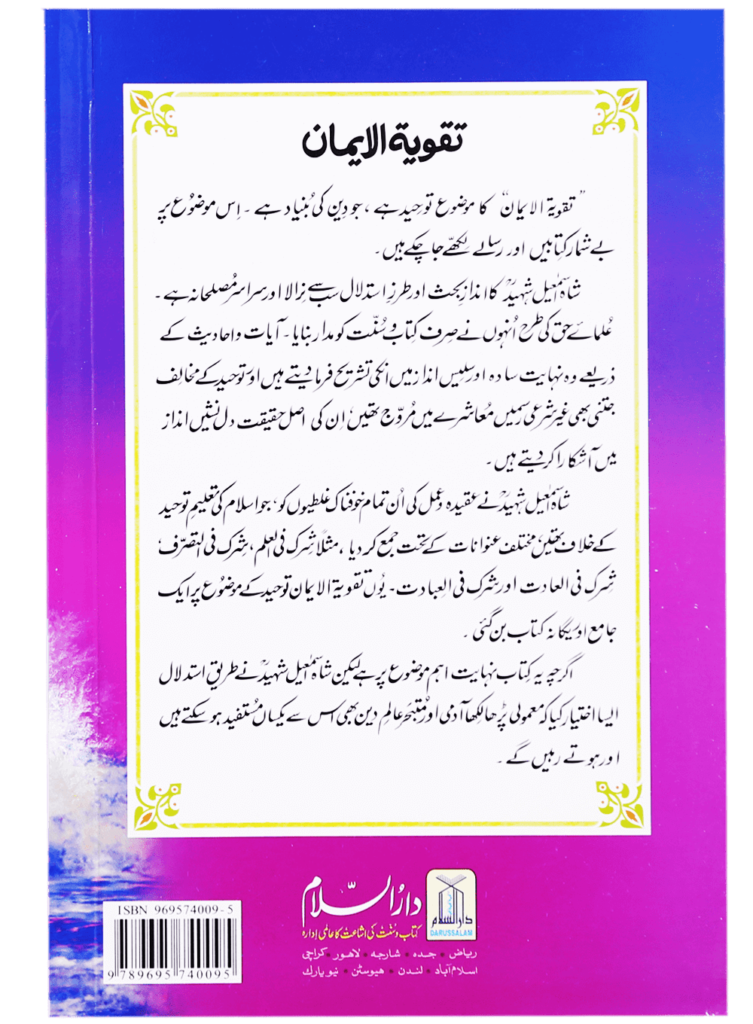 تقویة الایمان
”تقویة الایمان“ کا موضوع توحید ہے ، جو دین کی بُنیاد ہے ۔ اِس موضوع پر
بے شمار کتابیں اور رسالے لِکھے جا چکے ہیں ۔
شاہ اسمٰعیل شہیدؒ کا اندازِ بحث اور طرزِ استدلال سب سے نِرالا اور سراسر مُصلحانہ ہے ۔
عُلمائے حق کی طرح اُنہوں نے صِرف کتاب و سُنّت کو مدار بنایا ۔ آیات و احادیث کے
ذریعے وہ نہایت سادہ اور سلیس انداز میں انکی تشریح فرما دیتے ہیں اور توحید کے مخالف
جتنی بھی غیر شرعی رسمیں مُعاشرے میں مُروّج تھیں اِن کی اصل حقیقت دل نشیں انداز
میں آشکارا کر دیتے ہیں ۔
شاہ اسمٰعیل شہیدؒ نے عقیدہ و عمل کی اُن تمام خوفناک غلطیوں کو، جو اسلام کی تعلیمِ توحید
کے خلاف تھیں، مختلف عنوانات کے تحت جمع کر دیا ، مثلاً شِرک فی العلم، شِرک فی التصرّف
شِرک فی العادت اور شرک فی العبادت ۔ یُوں تقویة الایمان توحید کے موضوع پر ایک
جامع اور یگانہ کتاب بن گئی ۔
اگرچہ یہ کِتاب نہایت اہم موضوع پر ہے لیکن شاہ اسمٰعیل شہیدؒ نے طریقِ استدلال
ایسا اختیار کیا کہ معمولی پڑھا لکھا آدمی اور مُتبحّر عالمِ دین بھی اس سے یکساں مُستفید ہو سکتے ہیں
اور ہوتے رہیں گے ۔
دارُالسّلام
کتاب و سُنّت کی اشاعت کا عالمی اِدارہ
ریاض • جدہ • شارجہ • لاھور • کراچی
اسلام آباد • لندن • ھیوسٹن • نیو یارک
دارالسلام
DARUSSALAM
ISBN 969574009-5
9 789695 740095